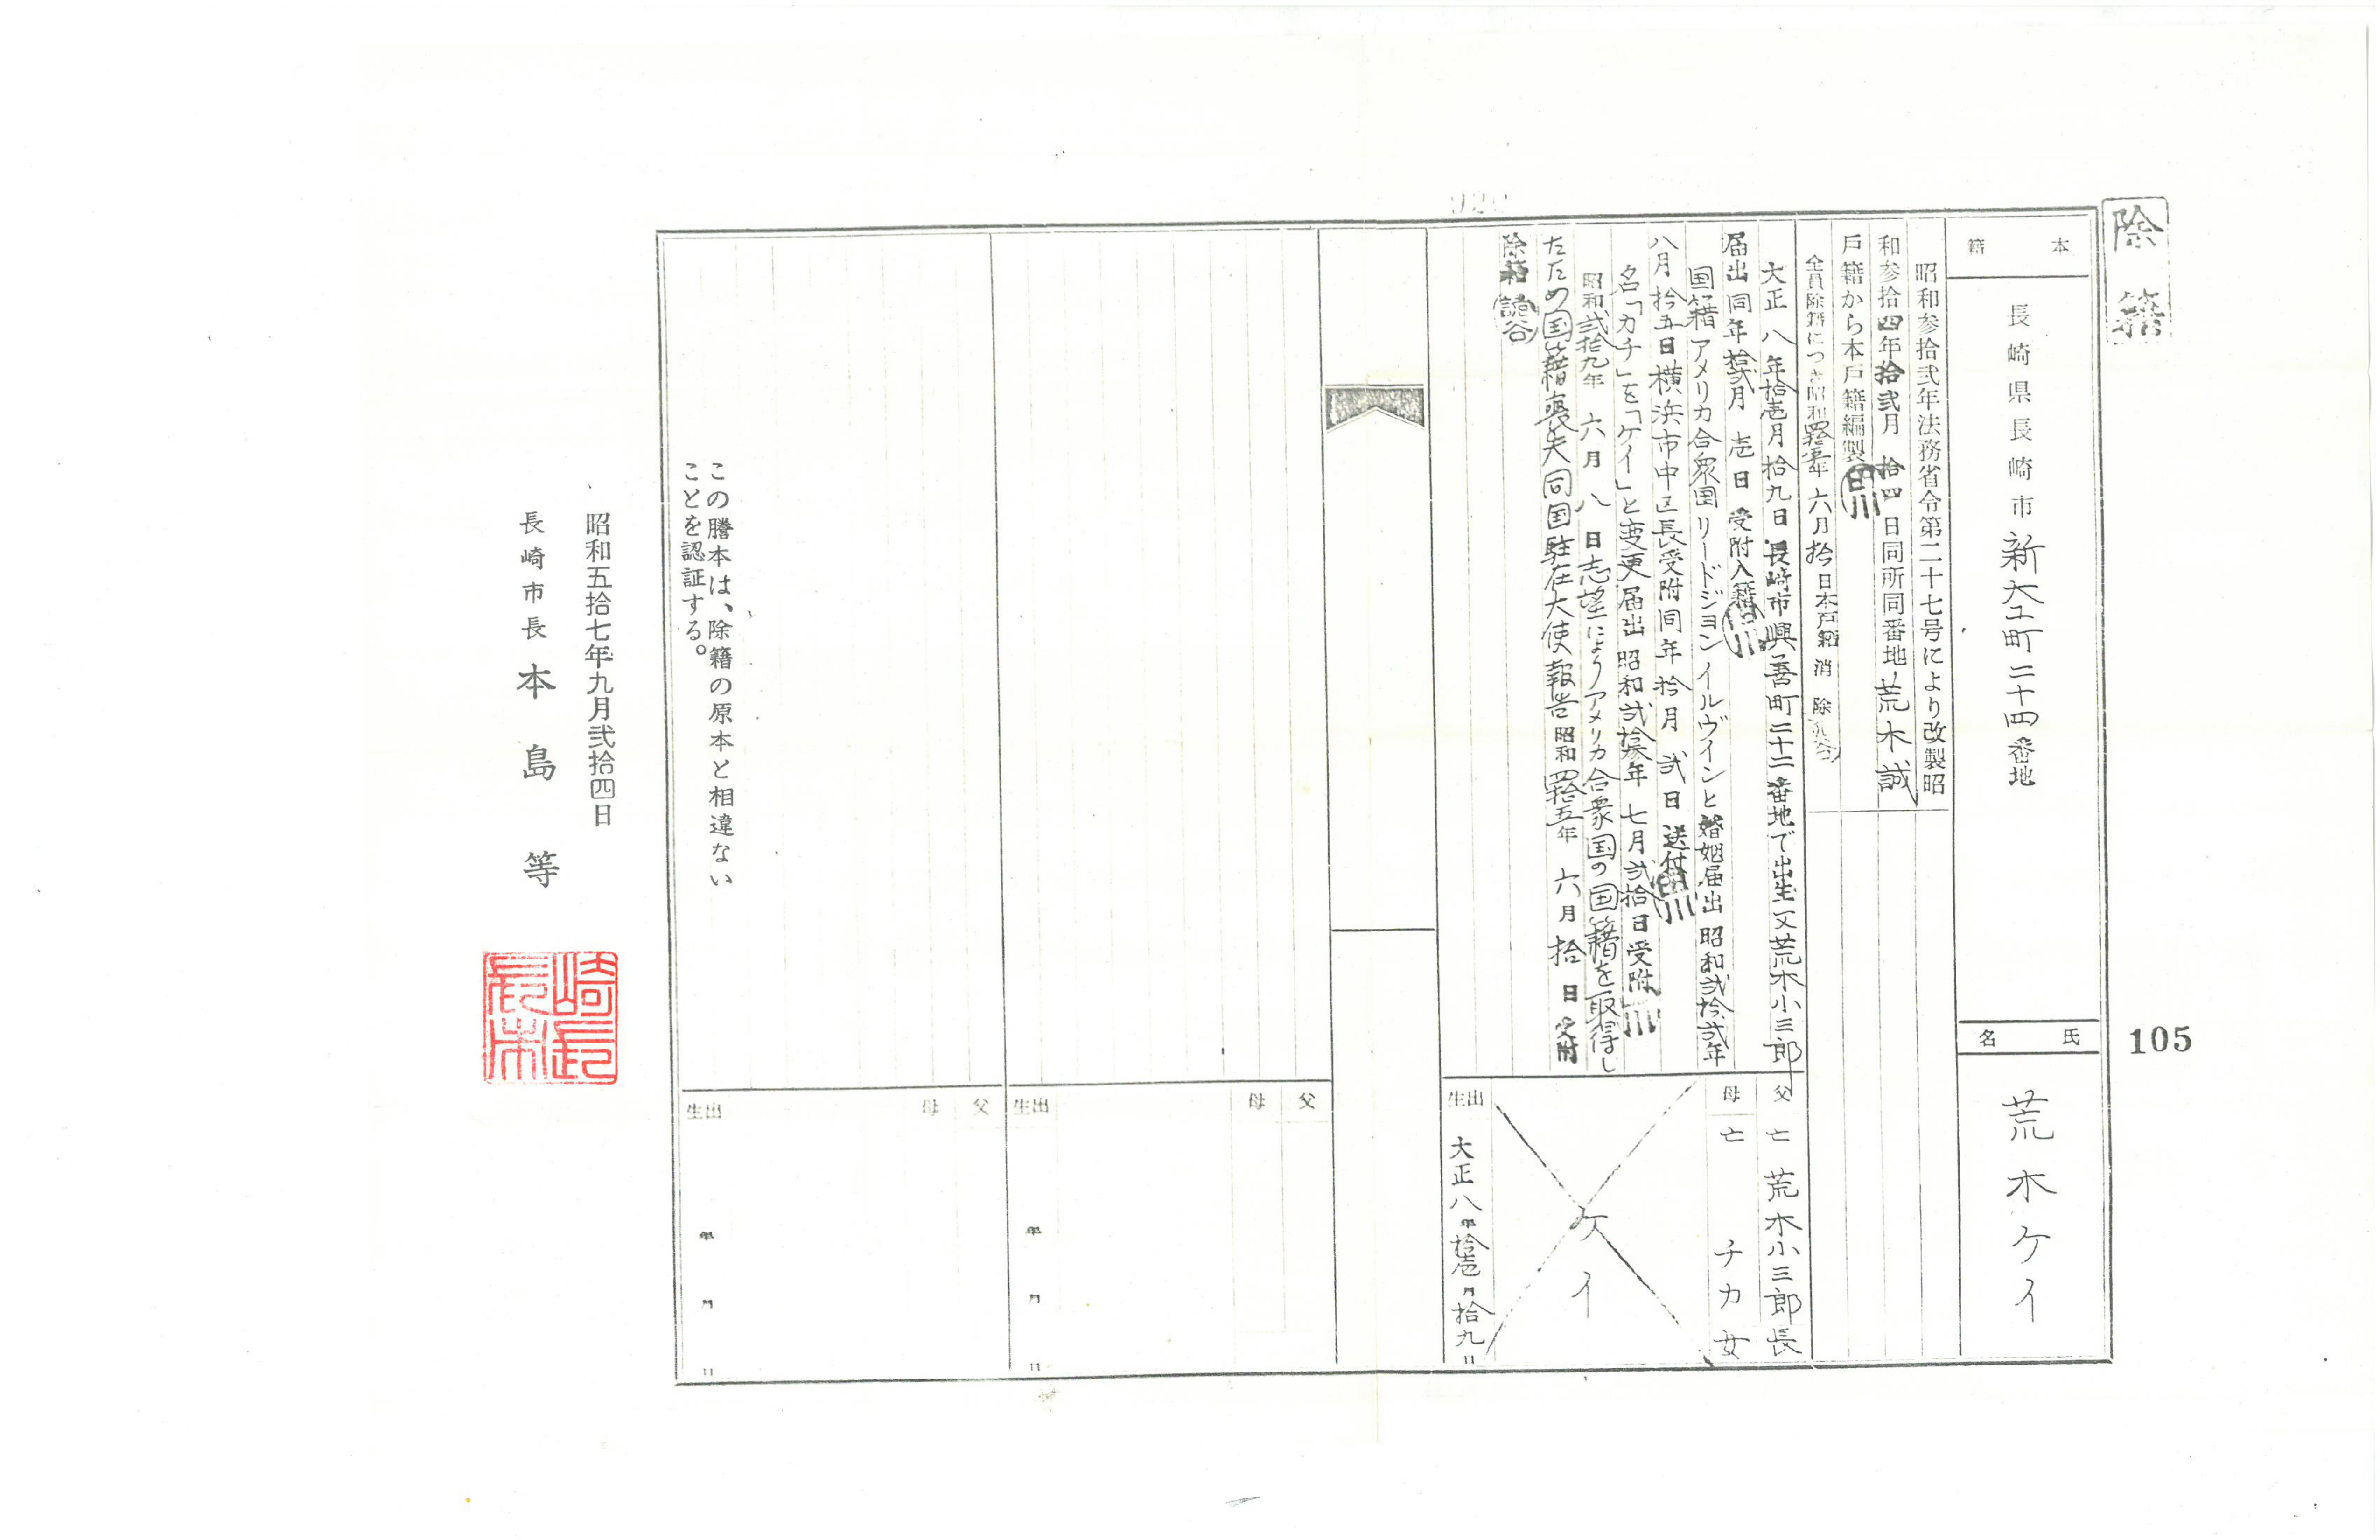 除籍
105
本籍
長崎県長崎市新大工町二十四番地
氏名
荒木ケイ
昭和参拾弐年法務省令第二十七号により改製昭
和参拾四年拾弐月拾四日同所同番地荒木誠
戸籍から本戸籍編製
全員除籍につき昭和四拾五年六月拾日本戸籍消除
大正八年拾壱月拾九日長崎市興善町二十二番地で出生父荒木小三郎
届出同年拾弐月壱日受附入籍
国籍アメリカ合衆国リードジョンイルヴインと婚姻届出昭和弐拾弐年
八月拾五日横浜市中区長受附同年拾月弐日送付
名「カチ」を「ケイ」と変更届出昭和弐拾年七月弐拾日受附
昭和弐拾九年六月八日志望によりアメリカ合衆国の国籍を取得し
たため国籍喪失同国駐在大使報告昭和四拾五年六月拾日受附
除籍
父 亡 荒木小三郎 長
母 亡 チカ 女
ケイ
出生 大正八年拾壱月拾九日
父
母
出生 年 月 日
父
母
出生 年 月 日
この謄本は、除籍の原本と相違ない
ことを認証する。
昭和五拾七年九月弐拾四日
長崎市長 本島等